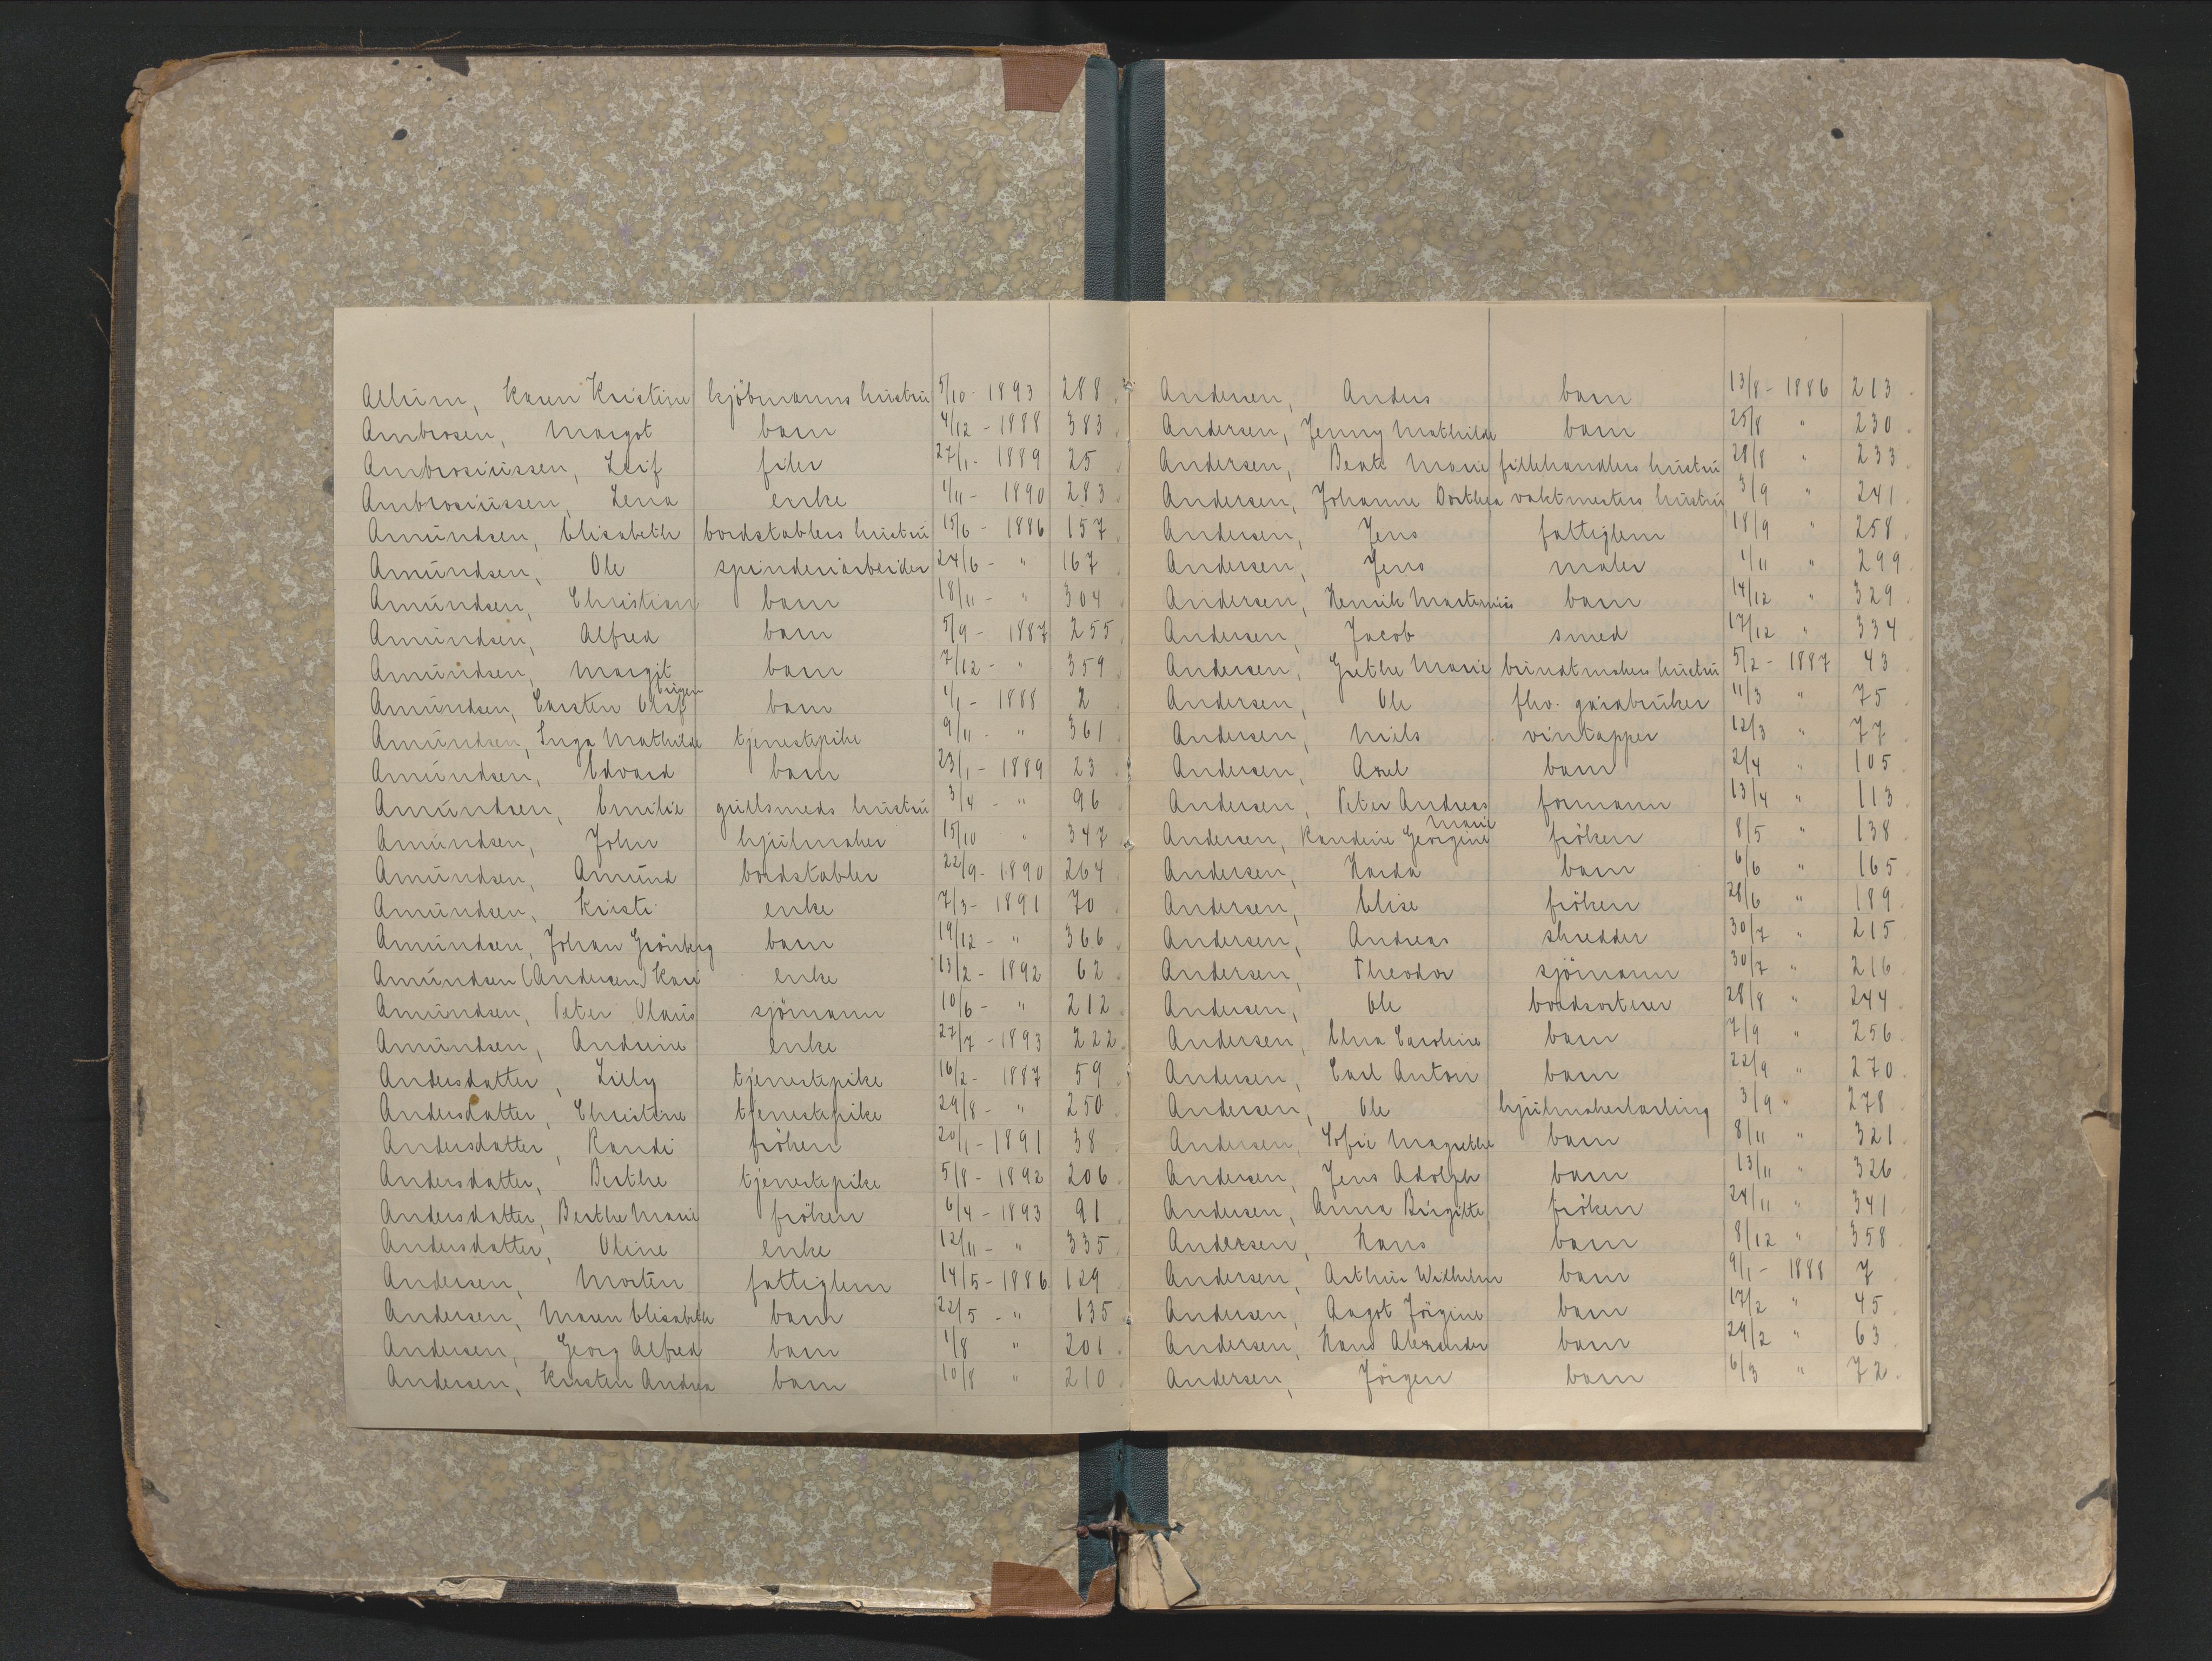 Allum, Karen Kristine kjöbmanns hustru 5/10 - 1893 288.
Ambrosen, Margot barn 4/12 - 1888 383.
Ambrosiussen, Leif filer 27/1 - 1889 25.
Ambrosiussen, Lena enke 1/11 - 1890 283.
Amundsen, Elisabeth bordstablers hustru 15/6 - 1886 157.
Amundsen, Ole spinderiarbeider 24/6 - " 167.
Amundsen, Christian barn 18/11 - " 304.
Amundsen, Alfred barn 5/9 - 1887 255.
Amundsen, Margit barn 7/12 - " 359.
Amundsen, Carsten Olaf barn 1/1 - 1888 2.
Amundsen, Inga Mathilde tjenestepike 9/11 - " 361.
Amundsen, Edvard barn 23/1 - 1889 23.
Amundsen, Emilie gullsmeds hustru 3/4 - " 96.
Amundsen, John hjulmaker 15/10 " 347.
Amundsen, Amund bordstabler 22/9 - 1890 264.
Amundsen, Kristi enke 7/3 - 1891 70.
Amundsen, Johan Grönberg barn 19/12 - " 366.
Amundsen (Andersen) Kari enke 13/2 - 1892 62.
Amundsen, Peter Olaus sjömann 10/6 - " 212.
Amundsen, Andrine enke 27/7 - 1893 222.
Andersdatter, Lilly tjenestepike 16/2 - 1887 59.
Andersdatter, Christine tjenestepike 29/8 - " 250.
Andersdatter, Randi fröken 20/1 - 1891 38.
Andersdatter, Berthe tjenestepike 5/8 - 1892 206.
Andersdatter, Berthe Marie fröken 6/4 - 1893 91.
Andersdatter, Oline enke 12/11 - " 335.
Andersen, Morten fattiglem 14/5 - 1886 129.
Andersen, Maren Elisabeth barn 22/5 - " 135.
Andersen, Georg Alfred barn 1/8 " 201.
Andersen, Kirsten Andrea barn 10/8 " 210.
Andersen, Anders barn 13/8 - 1886 213.
Andersen, Jenny Mathilde barn 25/8 " 230.
Andersen, Beate Marie fillehandlers hustru 28/8 " 233.
Andersen, Johanne Dorthea vaktmesters hustru 3/9 " 241.
Andersen, Jens fattiglem 18/9 " 258.
Andersen, Jens maler 1/11 " 299.
Andersen, Henrik Martenius barn 14/12 " 329.
Andersen, Jacob smed 17/12 " 334.
Andersen, Grethe Marie buntmakers hustru 5/2 - 1887 43.
Andersen, Ole fhv. gårdbruker 11/3 " 75.
Andersen, Niels vintapper 12/3 " 77.
Andersen, Axel barn 2/4 " 105.
Andersen, Peter Andreas formann 13/4 " 113.
Andersen, Randine Georgine Marie fröken 8/5 " 138.
Andersen, Harda barn 6/6 " 165.
Andersen, Elise fröken 28/6 " 189.
Andersen, Andreas skredder 30/7 " 215.
Andersen, Theodor sjömann 30/7 " 216.
Andersen, Ole bordsorterer 28/8 " 244.
Andersen, Elna Caroline barn 7/9 " 256.
Andersen, Carl Anton barn 22/9 " 270.
Andersen, Ole hjulmakerlærling 3/9 " 278.
Andersen, Sofie Magrethe barn 8/11 " 321.
Andersen, Jens Adolph barn 13/11 " 326.
Andersen, Anna Birgitte fröken 24/11 " 341.
Andersen, Hans barn 8/12 " 358.
Andersen, Arthur Wilhelm barn 9/1 - 1888 7.
Andersen, Aagot Jörgine barn 17/2 " 45.
Andersen, Hans Alexander barn 29/2 " 63.
Andersen, Jörgen barn 6/3 " 72.